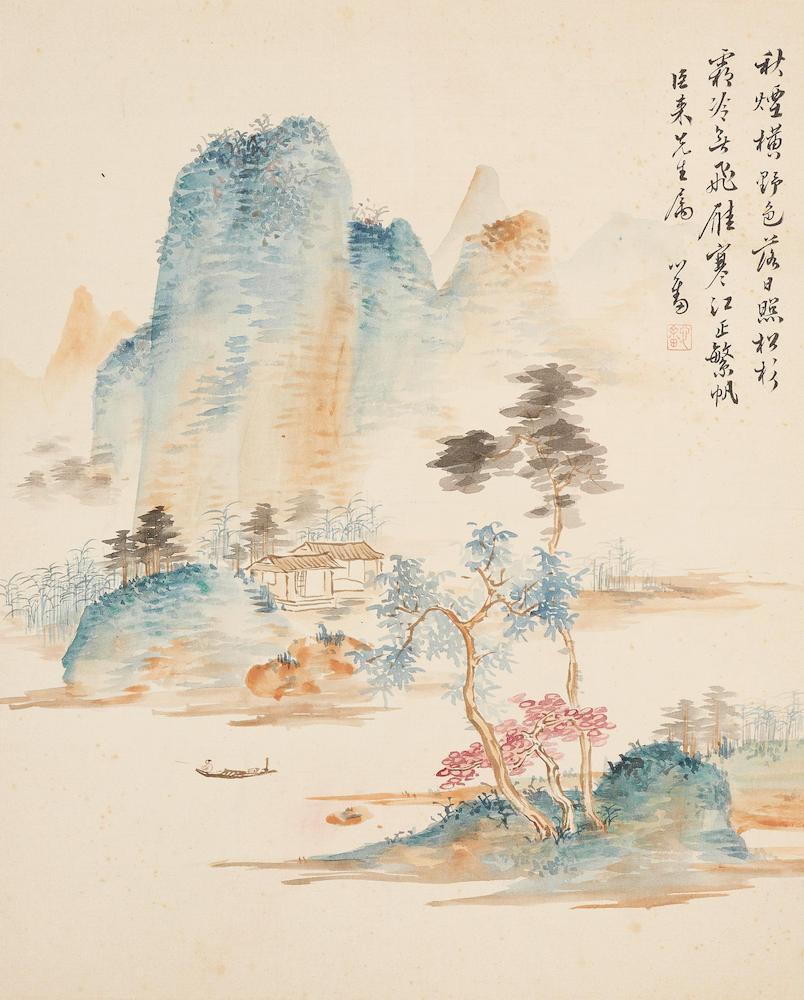 秋煙橫野色落日照松杉
霜冷無飛雁寒江正繁帆
巨來先生屬 心畬